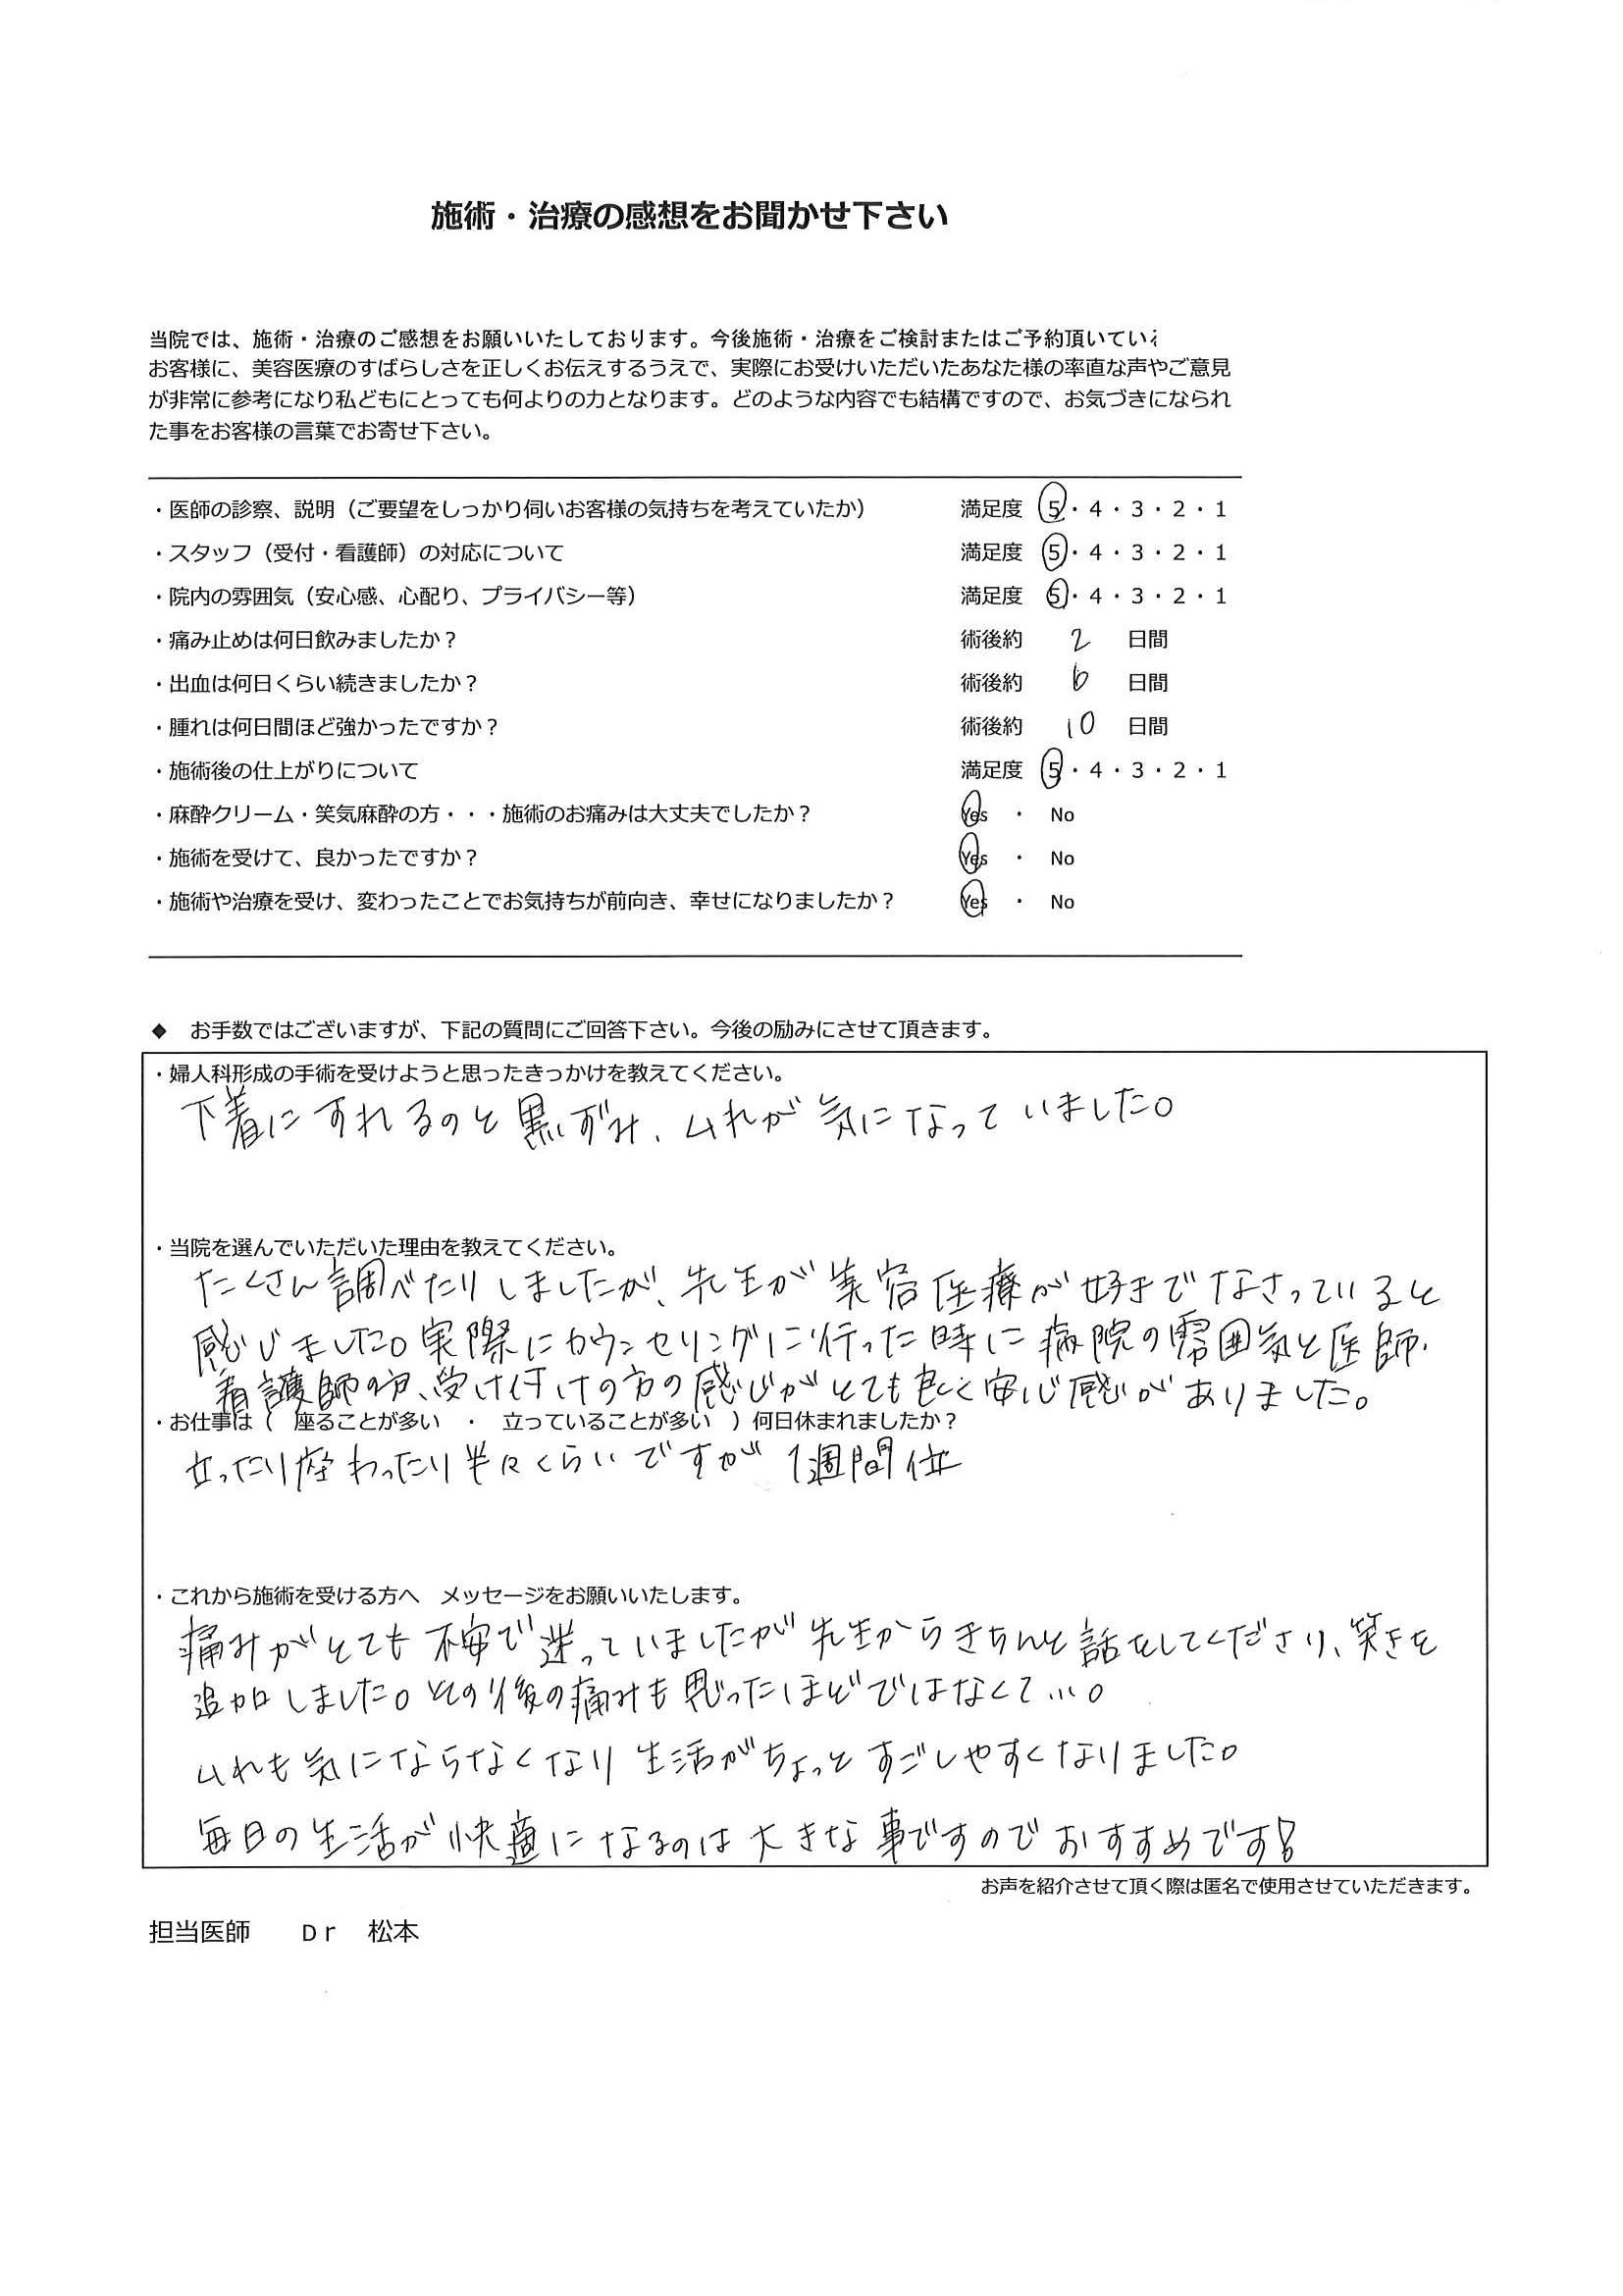 施術・治療の感想をお聞かせ下さい
当院では、施術・治療のご感想をお願いいたしております。今後施術・治療をご検討またはご予約頂いてい
お客様に、美容医療のすばらしさを正しくお伝えするうえで、実際にお受けいただいたあなた様の率直な声やご意見
が非常に参考になり私どもにとっても何よりの力となります。どのような内容でも結構ですので、お気づきになられ
た事をお客様の言葉でお寄せ下さい。
・医師の診察、説明（ご要望をしっかり伺いお客様の気持ちを考えていたか） 満足度 5・4・3・2・1
・スタッフ（受付・看護師）の対応について 満足度 5・4・3・2・1
・院内の雰囲気（安心感、心配り、プライバシー等） 満足度 5・4・3・2・1
・痛み止めは何日飲みましたか？ 術後約 2 日間
・出血は何日くらい続きましたか？ 術後約 6 日間
・腫れは何日間ほど強かったですか？ 術後約 10 日間
・施術後の仕上がりについて 満足度 5・4・3・2・1
・麻酔クリーム・笑気麻酔の方・・・施術のお痛みは大丈夫でしたか？ Yes ・ No
・施術を受けて、良かったですか？ Yes ・ No
・施術や治療を受け、変わったことでお気持ちが前向き、幸せになりましたか？ Yes ・ No
◆ お手数ではございますが、下記の質問にご回答下さい。今後の励みにさせて頂きます。
・婦人科形成の手術を受けようと思ったきっかけを教えてください。
下着にすれるのと黒ずみ、ムれが気になっていました。
・当院を選んでいただいた理由を教えてください。
たくさん調べたりしましたが、先生が美容医療が好きでなさっていると
感じました。実際にカウンセリングに行った時に病院の雰囲気と医師・
看護師の方、受け付けの方の感じがとても良く安心感がありました。
・お仕事は（ 座ることが多い ・ 立っていることが多い ）何日休まれましたか？
立ったり座わったり半々くらいですが 1週間位
・これから施術を受ける方へ メッセージをお願いいたします。
痛みがとても不安で迷っていましたが先生からきちんと話をしてくださり、笑きを
追加しました。その後の痛みも思ったほどではなくて…。
ムれも気にならなくなり生活がちょっとすごしやすくなりました。
毎日の生活が快適になるのは大きな事ですのでおすすめです!
お声を紹介させて頂く際は匿名で使用させていただきます。
担当医師 Dr 松本